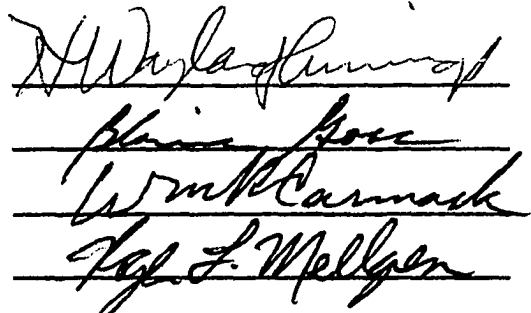 H Wayland Cummings
Blaine Goss
Wm R Carmack
Roger L. Mellgren